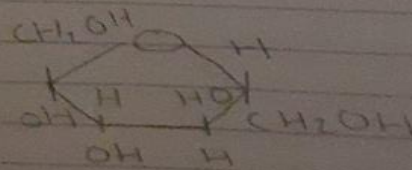 CH₂OH O H
H HO
OH CH2OH
OH H